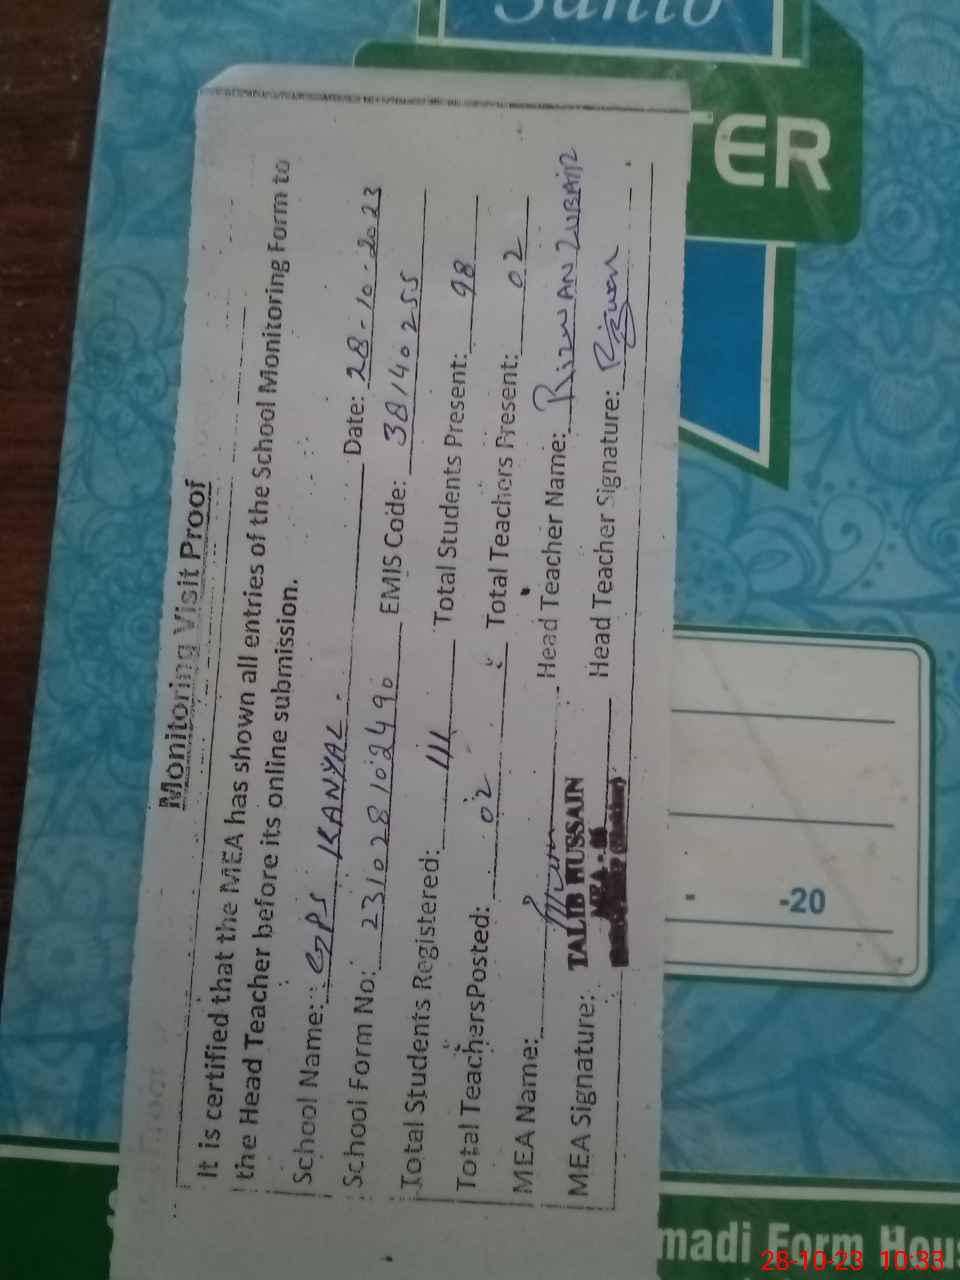 Monitoring Visit Proof
It is certified that the MEA has shown all entries of the School Monitoring Form to
the Head Teacher before its online submission.
School Name: GPS KANYAL. Date: 28-10-2023
School Form No: 231028102490 EMIS Code: 38140255
Total Students Registered: 111 Total Students Present: 98
Total TeachersPosted: 02 Total Teachers Present: 02
MEA Name: Head Teacher Name: RIZWAN ZUBAIR
MEA Signature: TALIB HUSSAIN Head Teacher Signature:
MEA -
TER
-20
madi Form Hous
28-10-23 10:33